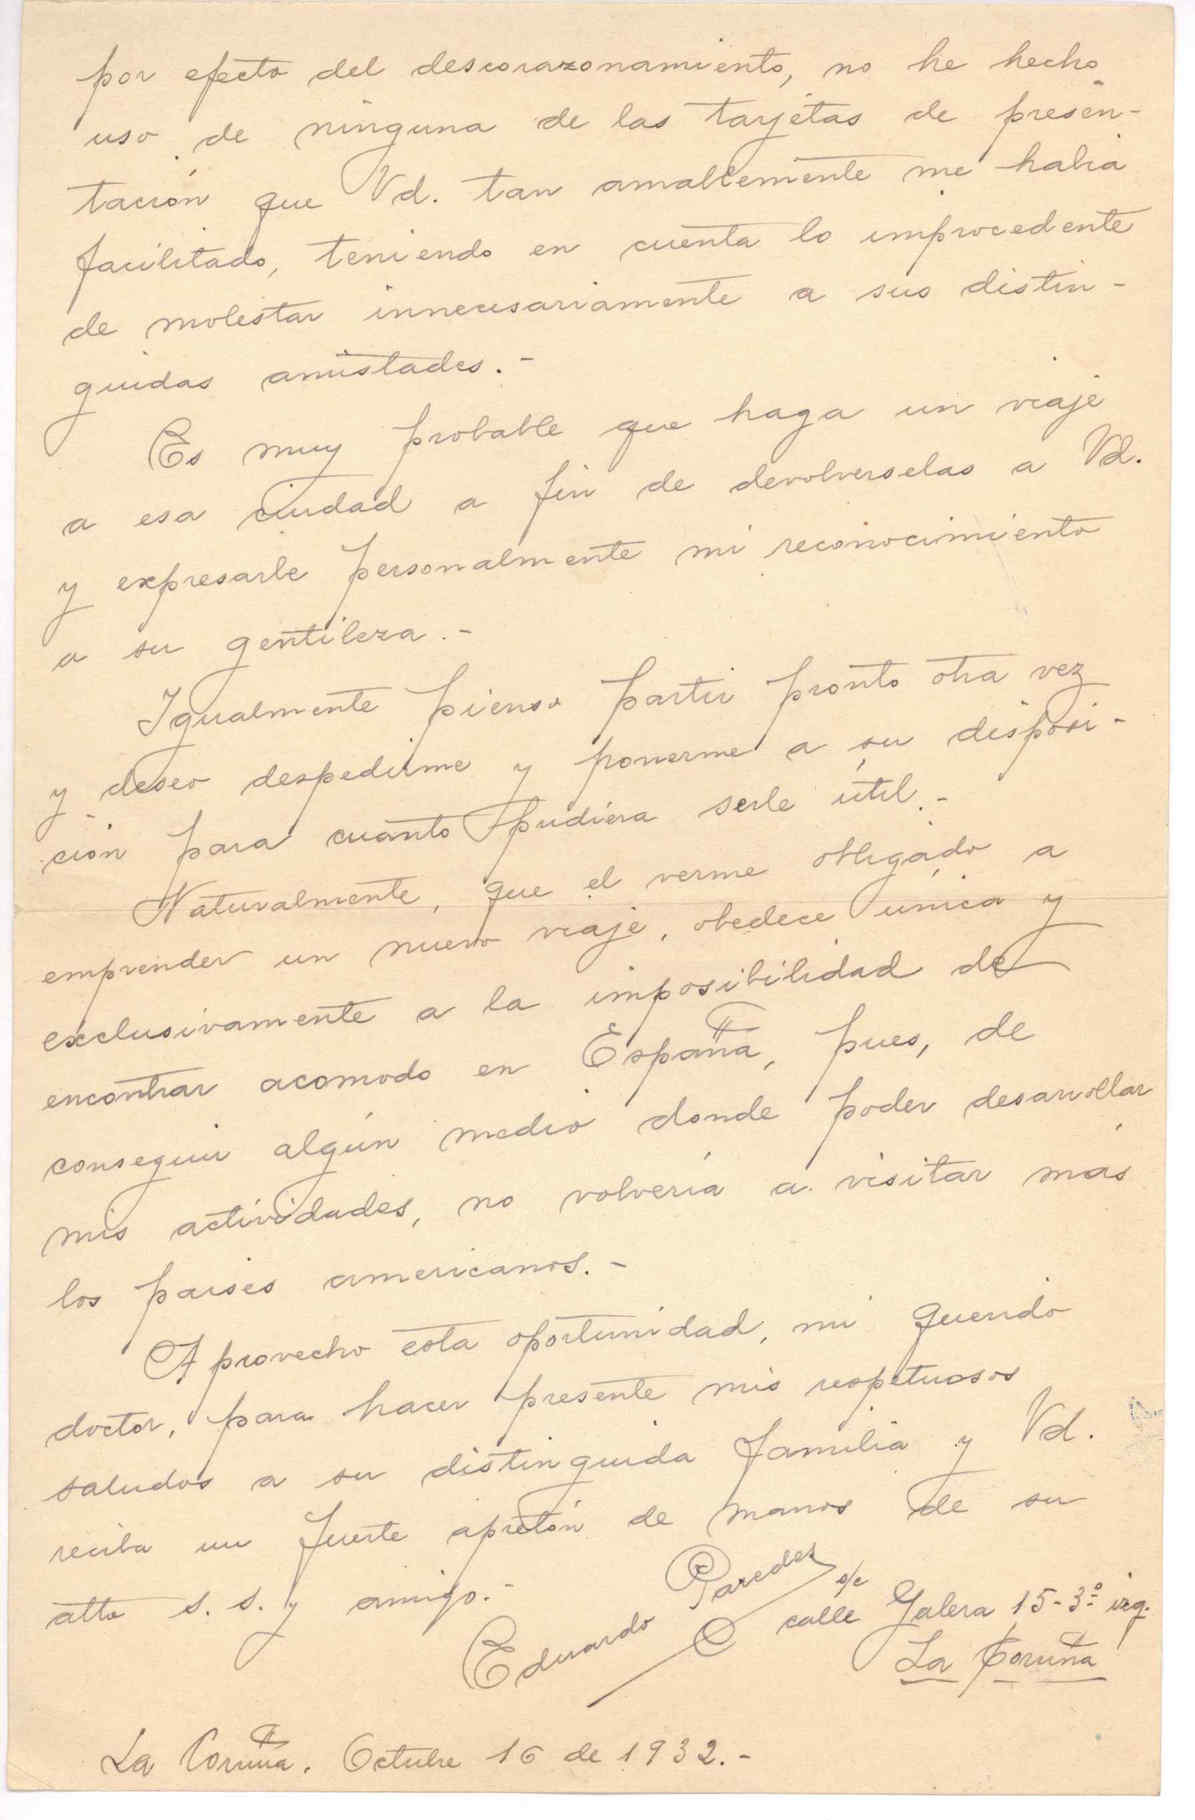 por efecto del descorazonamiento, no he hecho
uso de ninguna de las tarjetas de presen-
tación que Vd. tan amablemente me había
facilitado, teniendo en cuenta lo improcedente
de molestar innecesariamente a sus distin-
guidas amistades.-
Es muy probable que haga un viaje
a esa ciudad a fin de devolverselas a Vd.
y expresarle personalmente mi reconocimiento
a su gentileza.-
Igualmente pienso partir pronto otra vez
y deseo despedirme y ponerme a su disposi-
ción para cuanto pudiera serle útil.-
Naturalmente, que el verme obligado a
emprender un nuevo viaje, obedece única y
exclusivamente a la imposibilidad de
encontrar acomodo en España, pues, de
conseguir algún medio donde poder desarrollar
mis actividades, no volvería a visitar más
los paises americanos.-
Aprovecho esta oportunidad, mi querido
doctor, para hacer presente mis respetuosos
saludos a su distinguida familia y Vd.
reciba un fuerte apretón de manos de su
atto s. s. y amigo.-
Eduardo Paredes
s/c
calle Galera 15-3º izq.
La Coruña
La Coruña, Octubre 16 de 1932.-